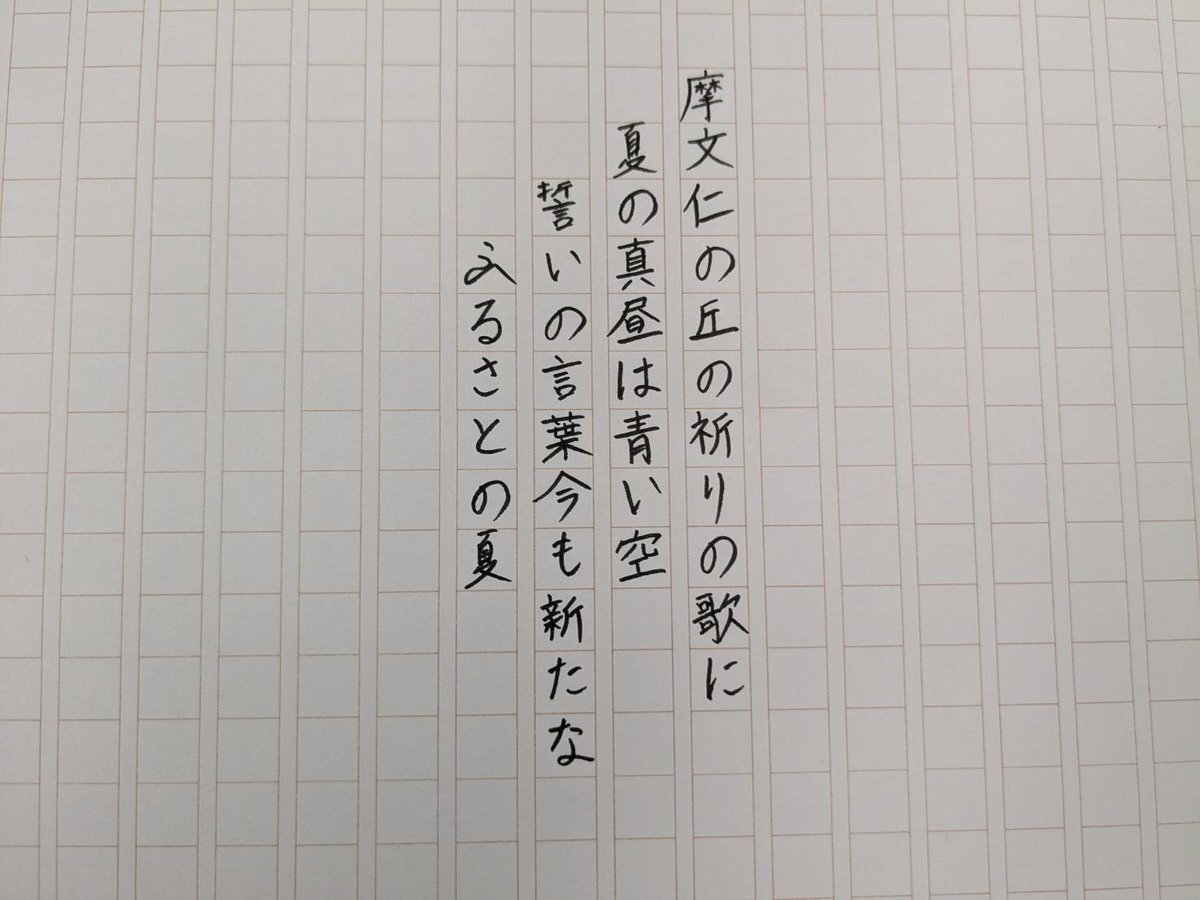 摩文仁の丘の祈りの歌に
夏の真昼は青い空
誓いの言葉今も新たな
ふるさとの夏